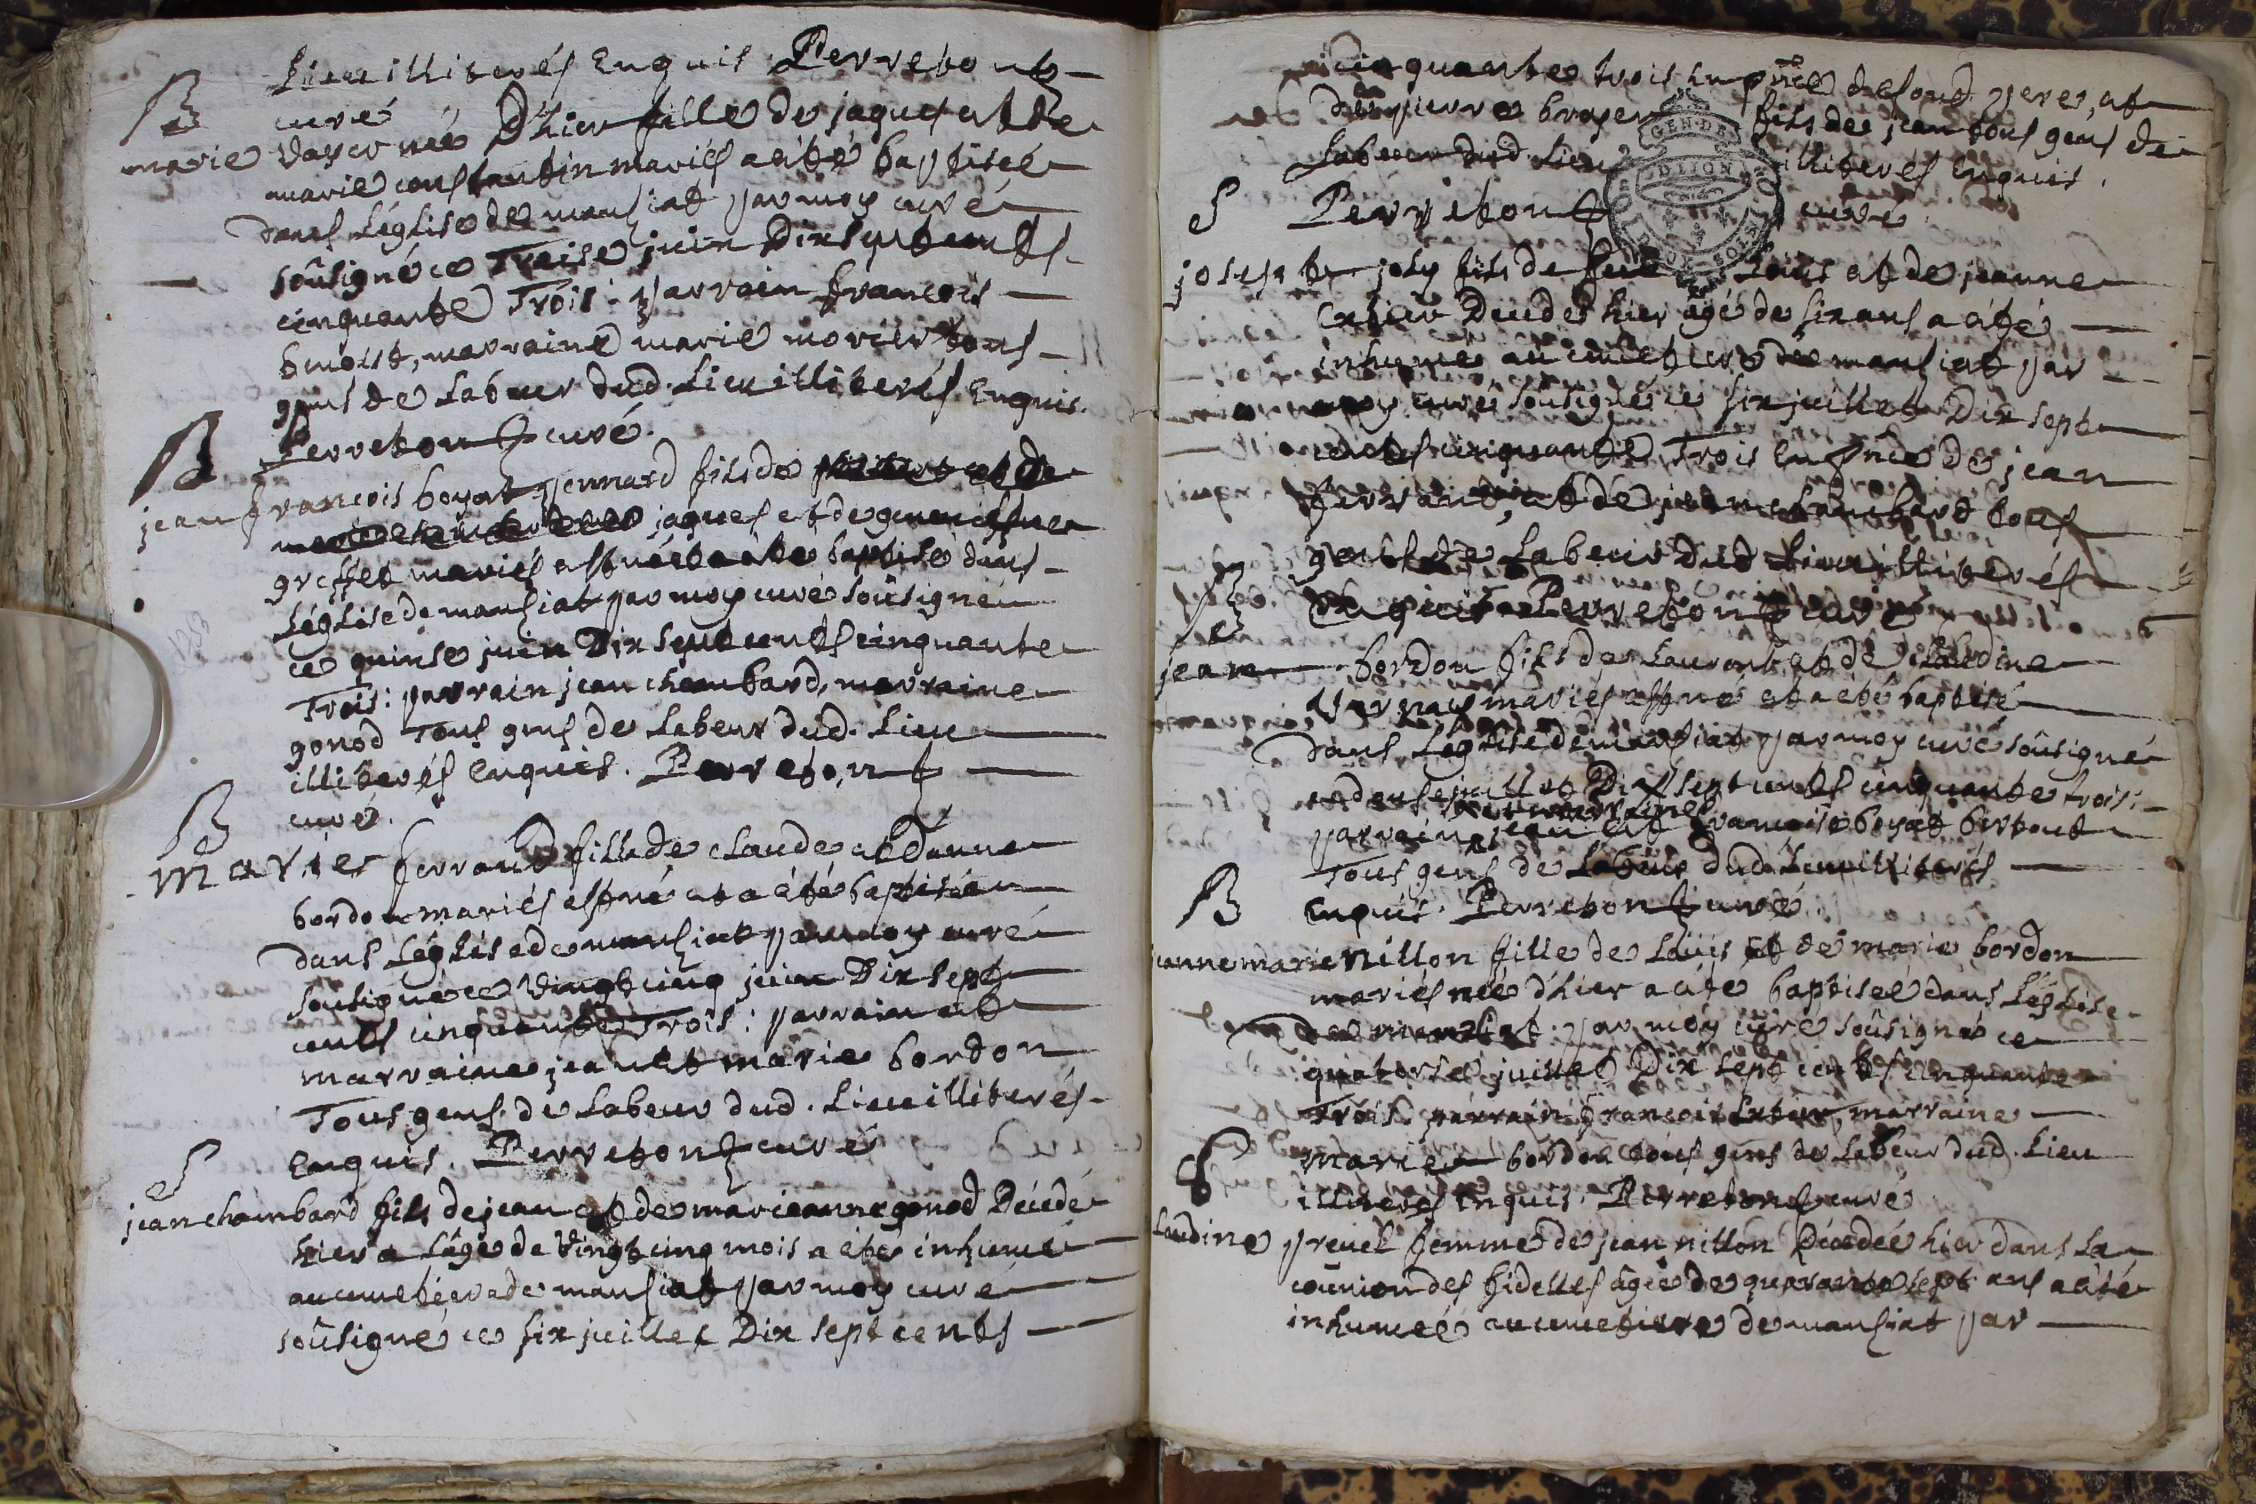 Lieu illiterés Enquis Perretont
curé
B
marie vayer née D'hier fille de jaques et de
marie constantin mariés a été baptisée
Dans L'église de mansiat par moy curé
soûsigné ce Treise juin Dix sept cents
cinquante Trois : parrain françois
benoist, marraine marie morier tous
gens de Labeur dud. Lieu illiterés Enquis.
Perretont curé.
B
jean françois boyat pennard fils de
jaques et de
greffet mariés est né et a été baptisé dans
L'église de mansiat par moy curé soûsigné
ce quinse juin Dix sept cents cinquante
Trois : parrain jean chambard, marraine
gonod Tous gens de Labeur dud. Lieu
illiterés Enquis. Perretont
curé.
B
Marie ferrand fille de claude et D'anne
bordon mariés est né et a été baptisée
Dans L'église de mansiat par moy curé
soûsigné ce vingt cinq juin Dix sept
cents cinquante Trois : parrain et
marraine jean et marie bordon
Tous gens de Labeur dud. Lieu illiterés
Enquis. Perretont curé
S
jean chambard fils de jean et de marieanne gonod Décédé
hier a L'âge de vingt cinq mois a été inhumé
au cimetière de mansiat par moy curé
soûsigné ce six juillet Dix sept cents
cinquante trois En pñce dud. pere, et
De pierre broyer fils de jean tous gens de
Labeur dud. Lieu illiterés Enquis.
GEN. DE DIJON
S
Perretont curé
josepte joly fils de Loüis et de jeanne
Décédé hier âgé de six ans a été
inhumé au cimetiere de mansiat par
moy curé soûsigné ce six juillet Dix sept
cents cinquante Trois En pñce de jean
ferrand, et de jean chambard tous
gens de Labeur dud Lieu illiterés
Enquis Perretont curé
B
jean bordon fils de Laurent et de claudine
mariés est né et a été baptisé
Dans L'église de mansiat par moy curé soûsigné
ce juillet Dix sept cents cinquante trois :
parrain jean et françoise boyat bertout
Tous gens de Labeur dud. Lieu illiterés
B
Enquis. Perretont curé
jeanne marie nillon fille de Loüis et de marie bordon
mariés née d'hier a été baptisée dans L'église
de mansiat par moy curé soûsigné ce
quatorse juillet Dix sept cents cinquante
Trois. parrain françois marraine
marie bordon tous gens de Labeur dud. Lieu
S
illiterés Enquis. Perretont curé
claudine preuel femme de jean nillon Décédée hier dans La
coûnion des fidelles âgée de quarante sept ans a été
inhumée au cimetiere de mansiat par